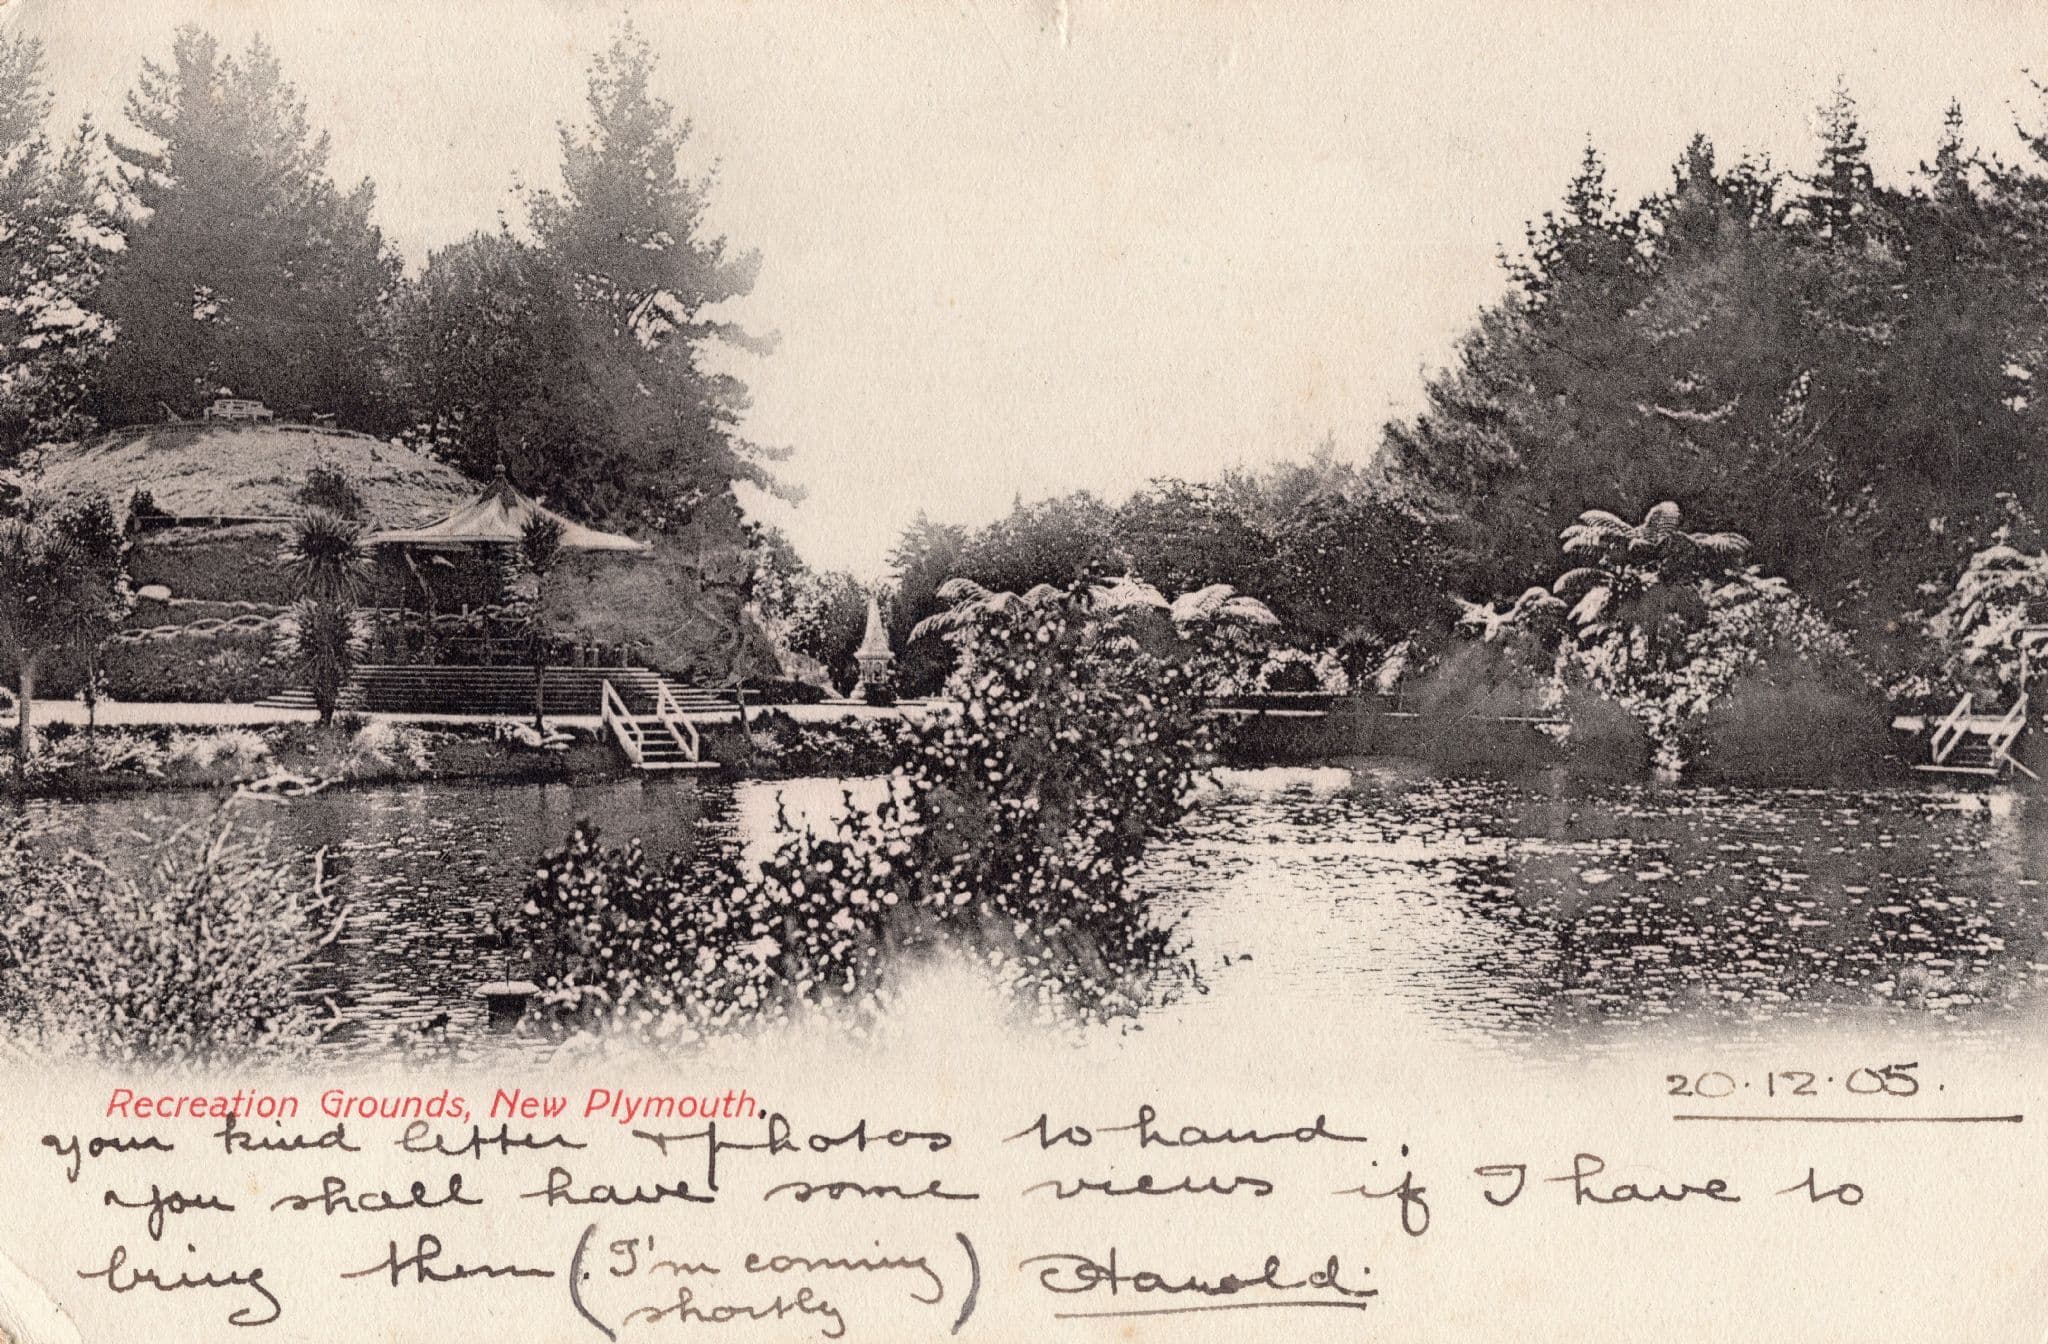 Recreation Grounds, New Plymouth.
20.12.05.
your kind letter + photos to hand.
you shall have some views if I have to
bring them (I'm coming
shortly) Harold.